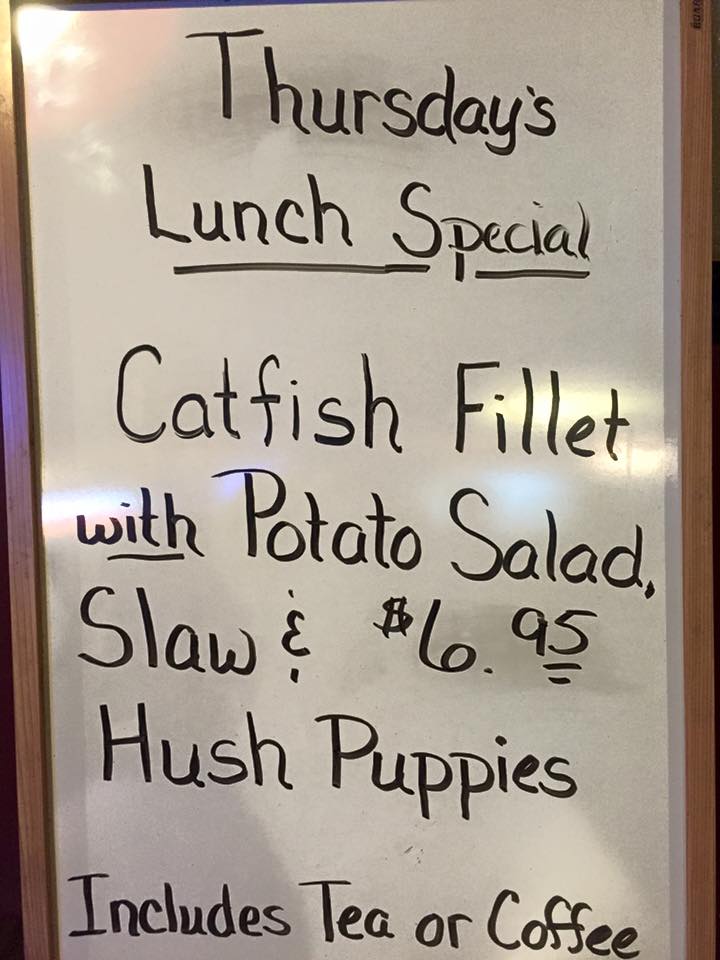 Thursday's
Lunch Special
Catfish Fillet
with Potato Salad,
Slaw & $6.95
Hush Puppies
Includes Tea or Coffee